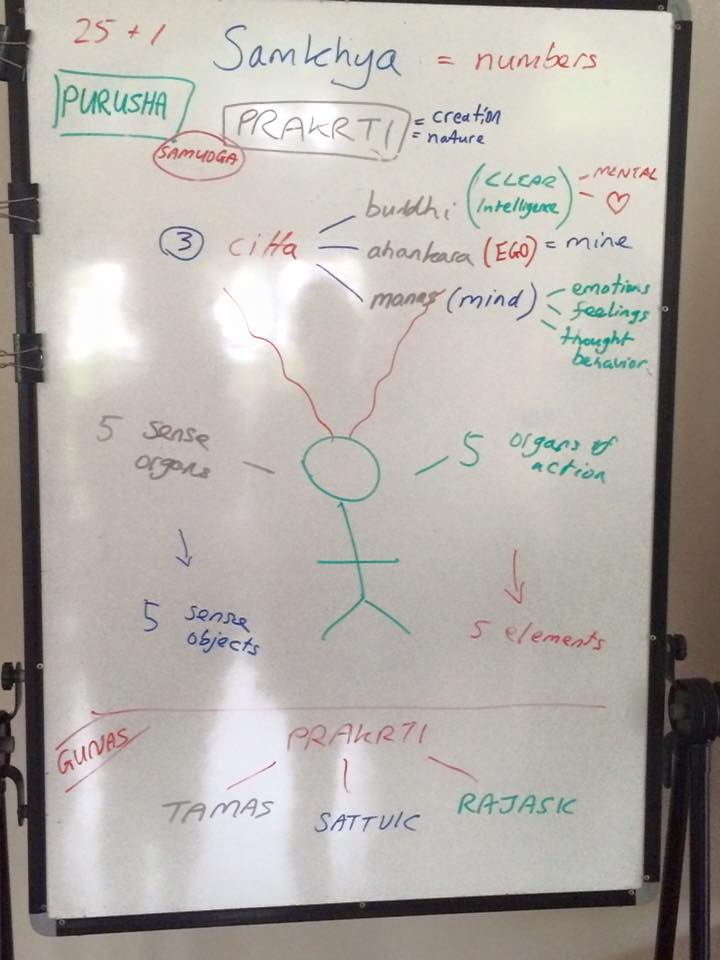 25 + 1
Samkhya = numbers
PURUSHA
PRAKRTI = creation
= nature
SAMYOGA
buddhi (CLEAR Intelligence) - MENTAL
- ♡
3 citta
ahankara (EGO) = mine
manas (mind) emotions
feelings
thought
behavior
5 sense
organs
5 organs of
action
5 sense
objects
5 elements
GUNAS
PRAKRTI
TAMAS
SATTVIC
RAJASIC